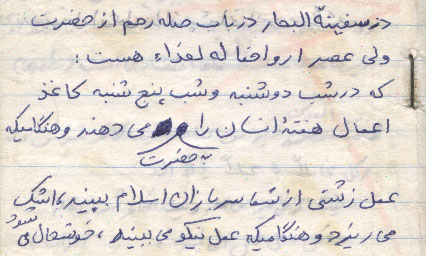 در سفینة البحار در باب صله رحم از حضرت
ولی عصر ارواحنا له لفداء هست :
که در شب دوشنبه و شب پنج شنبه کاغذ
اعمال هفتهٔ انسان را می دهند و هنگامیکه
به حضرت
عمل زشتی از شما سربازان اسلام ببینید، اشک
می ریزد و هنگامیکه عمل نیکو می بینید، خوشحال می شود